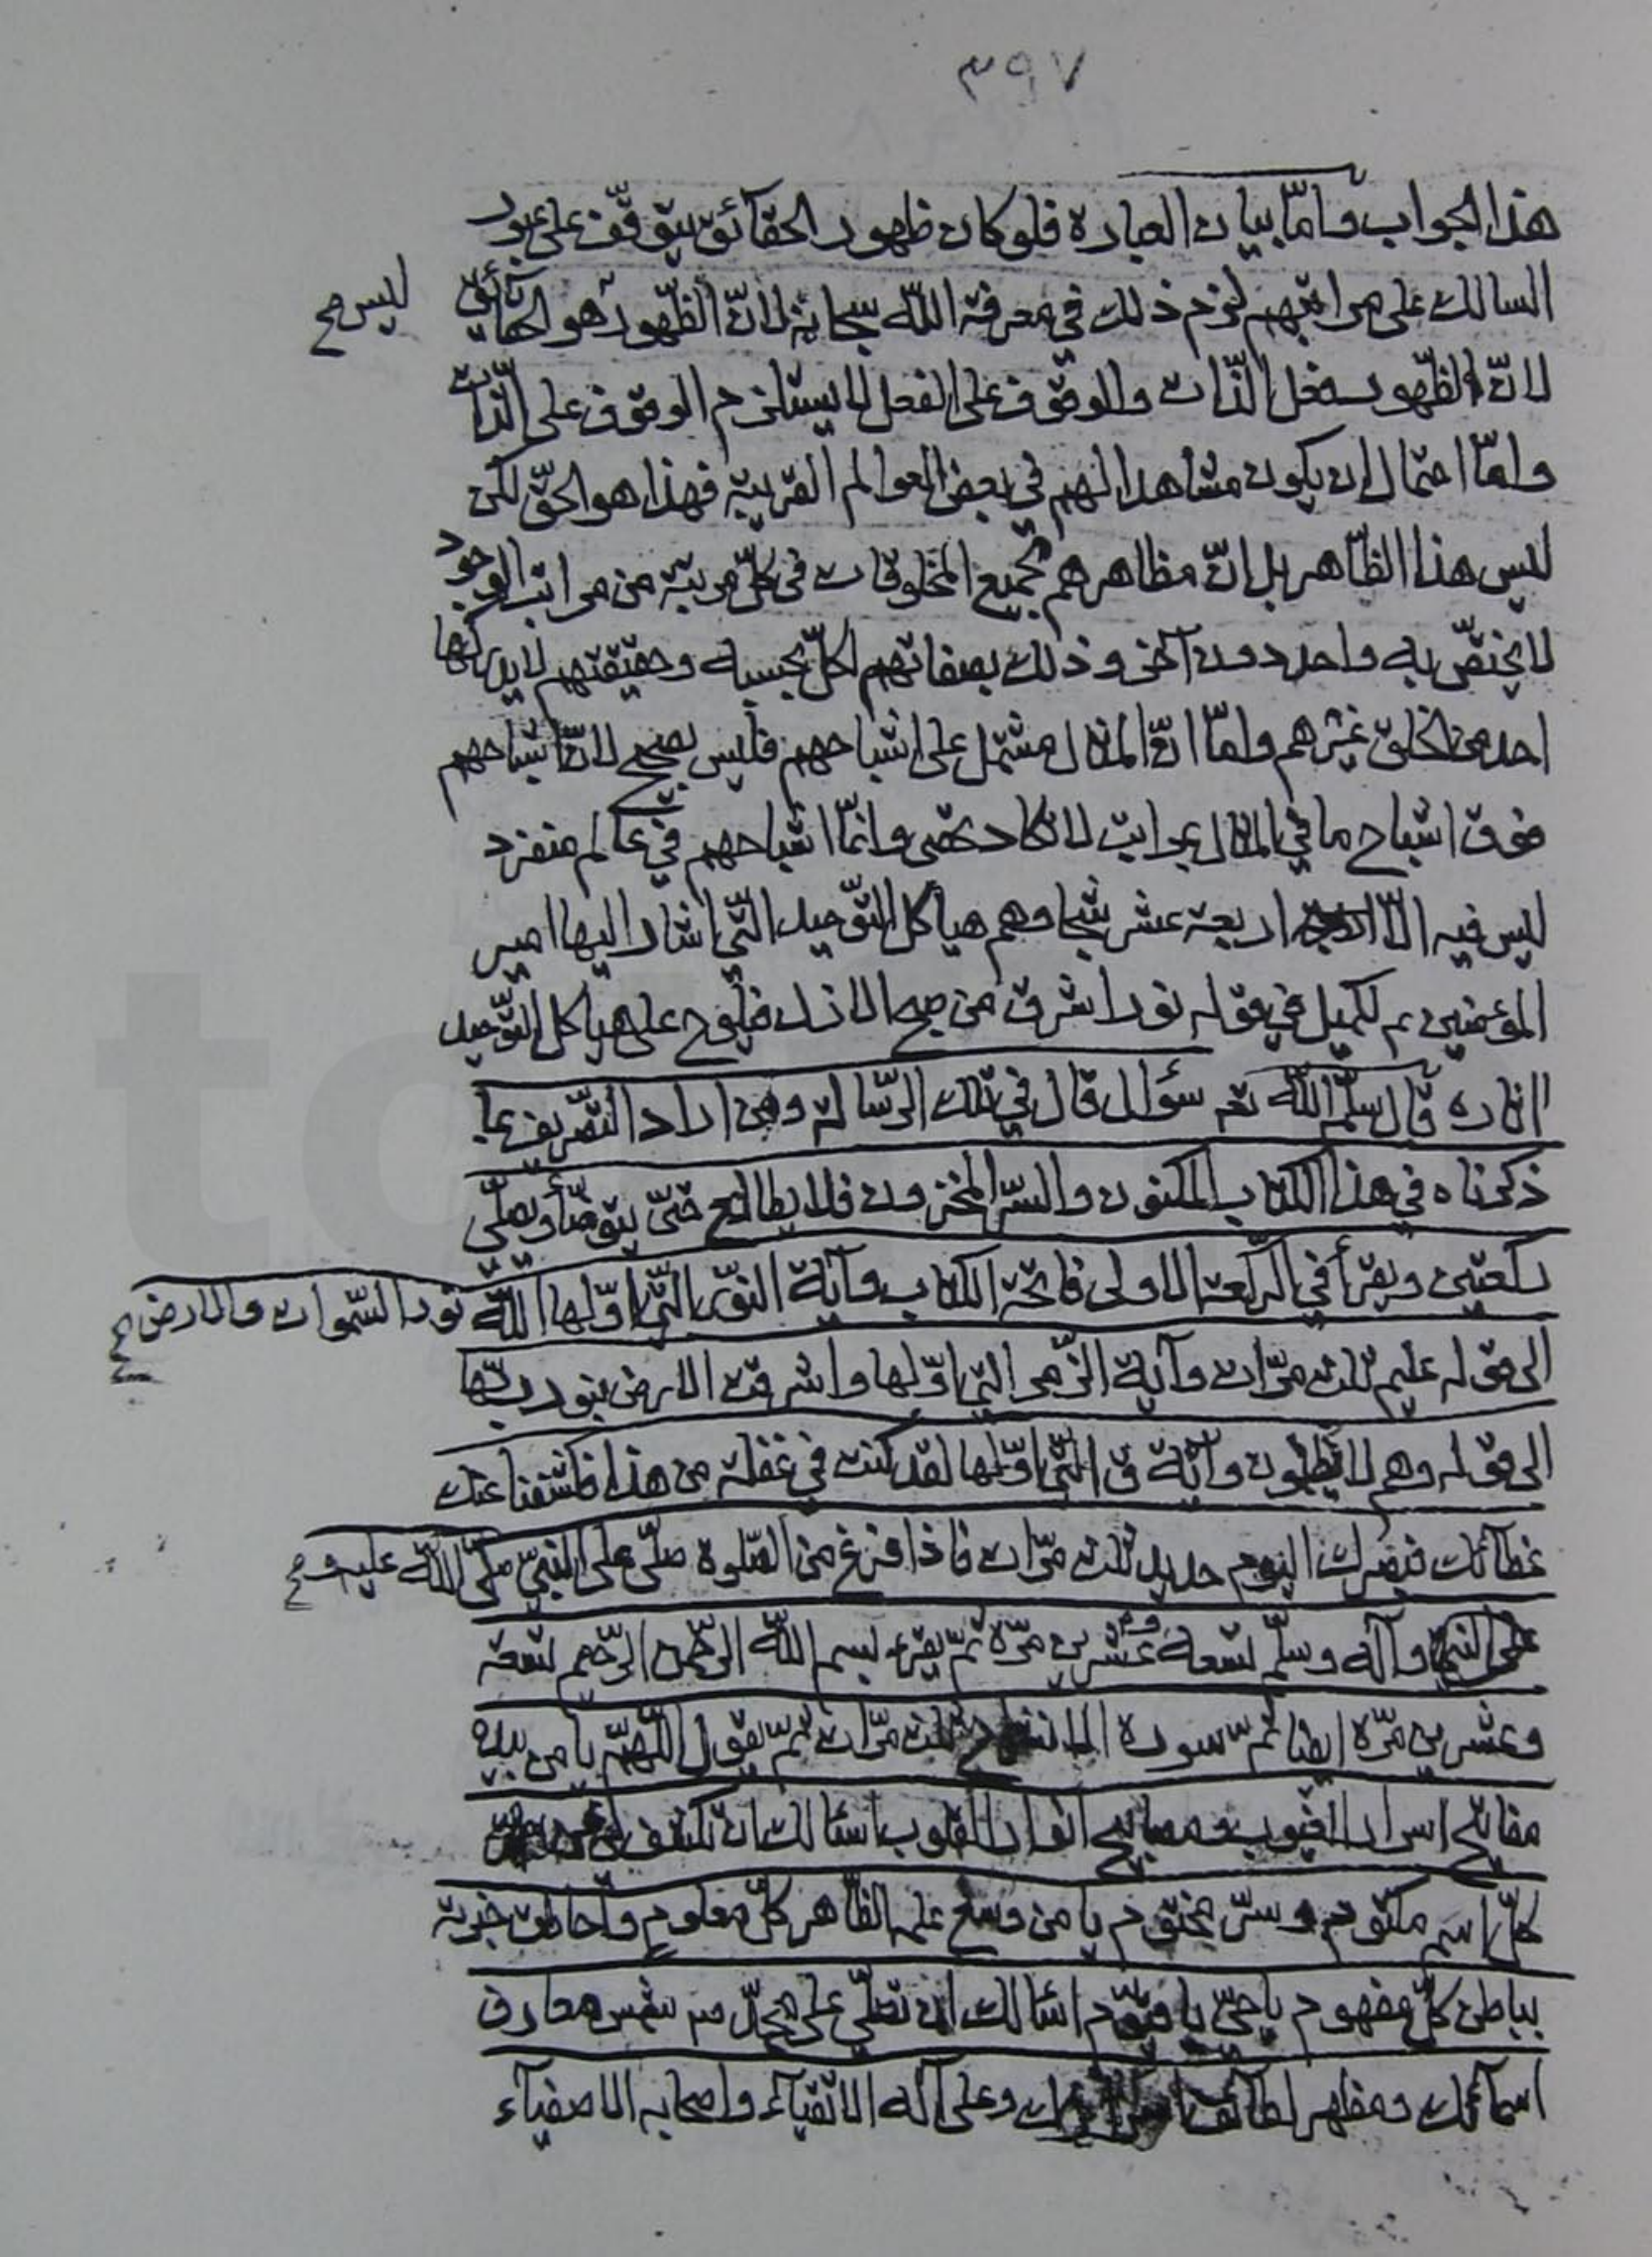 ٣٩٧
هذا الجواب وامّا بيان العبارة فلو كان ظهور الحقآئق يتوقّف على عبور
السالك على مراتبهم لزم ذلك في معرفة اللّه سبحانه لانّ الظّهور هو الحقآئق
ليس صح
لانّ الظّهور فعل الذّات والوقوف على الفعل لا يستلزم الوقوف على الذّات
وامّا احتمال ان يكون مشاهدا لهم في بعض العوالم القريبة فهذا هو الحقّ لكن
ليس هذا الظّاهر بل انّ مظاهرهم لجميع المخلوقات في كلّ مرتبة من مراتب الوجود
لا يختصّ به واحد دون آخر وذلك بصفاتهم لكلّ بحسبه وحقيقتهم لا يدركها
احد من الخلق غيرهم وامّا انّ المثال مشتمل على اشباحهم فليس بصحيح لانّ اشباحهم
فوق اشباح ما في المثال بمراتب لا تكاد تحصى وانّما اشباحهم في عالم منفرد
ليس فيه الّا اربعة عشر شبحا وهم هياكل التّوحيد الّتي اشار اليها امير
المؤمنين ع لكميل في قوله نور اشرق من صبح الازل فيلوح على هياكل التّوحيد
اثاره قال سلّمه اللّه تعم سؤال قال في تلك الرّسالة ومن اراد التصّريف بما
ذكرناه في هذا الكتاب المكنون والسّر المخزون فلا يطالع حتّى يتوضّأ ويصلّي
ركعتين ويقرأ في الركعة الاولى فاتحة الكتاب وآية النّور الّتي اوّلها اللّه نور السّموات والارض صح
الى قوله عليم ثلث مرّات وآية الزّمر الّتي اوّلها واشرقت الارض بنور ربّها
الى قوله وهم لا يظلمون وآية ق الّتي اوّلها لقد كنت في غفلة من هذا فكشفنا عنك
غطآئك فبصرك اليوم حديد ثلث مرّات فاذا فرغ من الصّلوة صلّى على النبيّ صلّى اللّه عليه و صح
على النبي وآله وسلّم تسعة وعشرين مرّة ثمّ يقرء بسم اللّه الرّحمن الرّحيم تسعة
وعشرين مرّة ايضا ثمّ سورة الم نشرح ثلث مرّات ثمّ يقول اللّهمّ يا من بيده
مفاتيح اسرار الغيوب ومصابيح انوار القلوب اسئالك ان تكشف لي
كلّ اسم مكتوم وسرّ مختوم يا من وسع علمه الظّاهر كلّ معلوم واحاطت خبرته
بباطن كلّ مفهوم يا حيّ يا قيّوم اسئالك ان تصلّي على محمّد ص شمس معارف
اسمآئك ومظهر لطآئف وعلى آله الاتقيآء واصحابه الاصفيآء